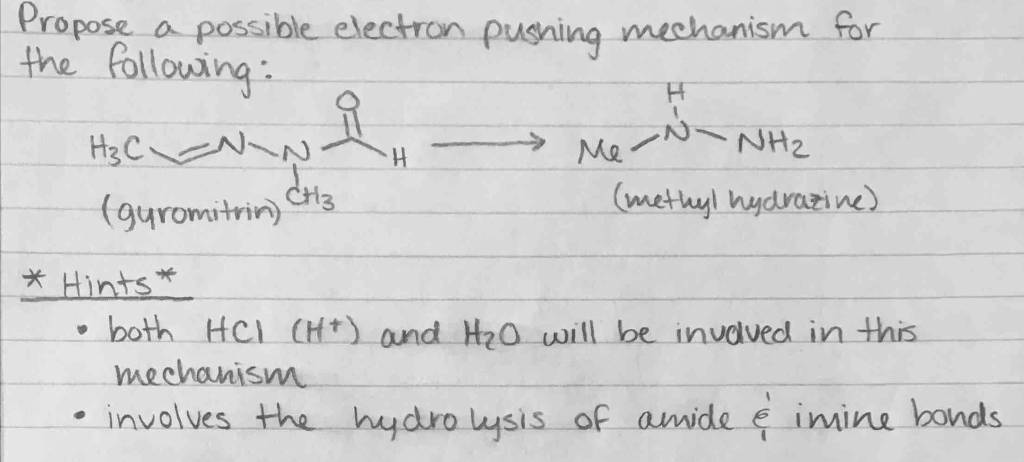 Propose a possible electron pushing mechanism for
the following:
O
H
H3C N N H Me N NH2
CH3
(gyromitrin) (methyl hydrazine)
* Hints *
• both HCl (H+) and H2O will be involved in this
mechanism
• involves the hydrolysis of amide & imine bonds